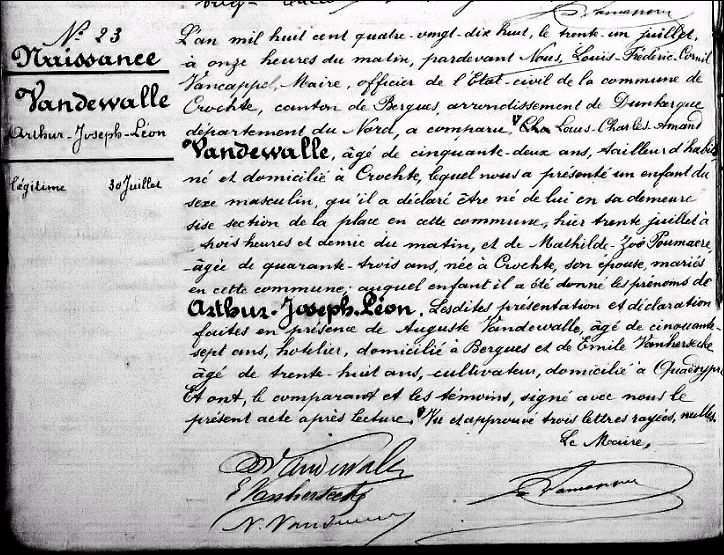 Nº 23
Naissance
Vandewalle
Arthur-Joseph-Léon
légitime 30 Juillet
L'an mil huit cent quatre-vingt-dix huit, le trente-un juillet,
à onze heures du matin, pardevant Nous, Louis-Frédéric-Cornil
Vancappel, Maire, officier de l'Etat-civil de la commune de
Crochte, canton de Bergues, arrondissement de Dunkerque
département du Nord, a comparu, Cha Louis-Charles-Amand
Vandewalle, âgé de cinquante-deux ans, tailleur d'habits
né et domicilié à Crochte, lequel nous a présenté un enfant du
sexe masculin, qu'il a déclaré être né de lui en sa demeure
sise section de la place en cette commune, hier trente juillet à
trois heures et demie du matin, et de Mathilde-Zoé Poumaere
âgée de quarante-trois ans, née à Crochte, son épouse, mariés
en cette commune; auquel enfant il a été donné les prénoms de
Arthur-Joseph-Léon. Lesdites présentation et déclaration
faites en présence de Auguste Vandewalle, âgé de cinquante-
sept ans, hotelier, domicilié à Bergues et de Emile Vanhersecke
âgé de trente-huit ans, cultivateur, domicilié à Quaëdypre
Et ont, le comparant et les témoins, signé avec nous le
présent acte après lecture. Vu et approuvé trois lettres rayées, nulles.
Le Maire,
Vandewalle
E Vanhersecke